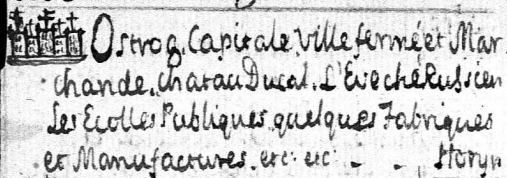 Ostrog. Capitale Ville fermé et Mar
chande. Chatau Ducal. L'Eveché Russien
Les Ecolles Publiques quelques Fabriques
et Manufactures. etc: etc: Horyn